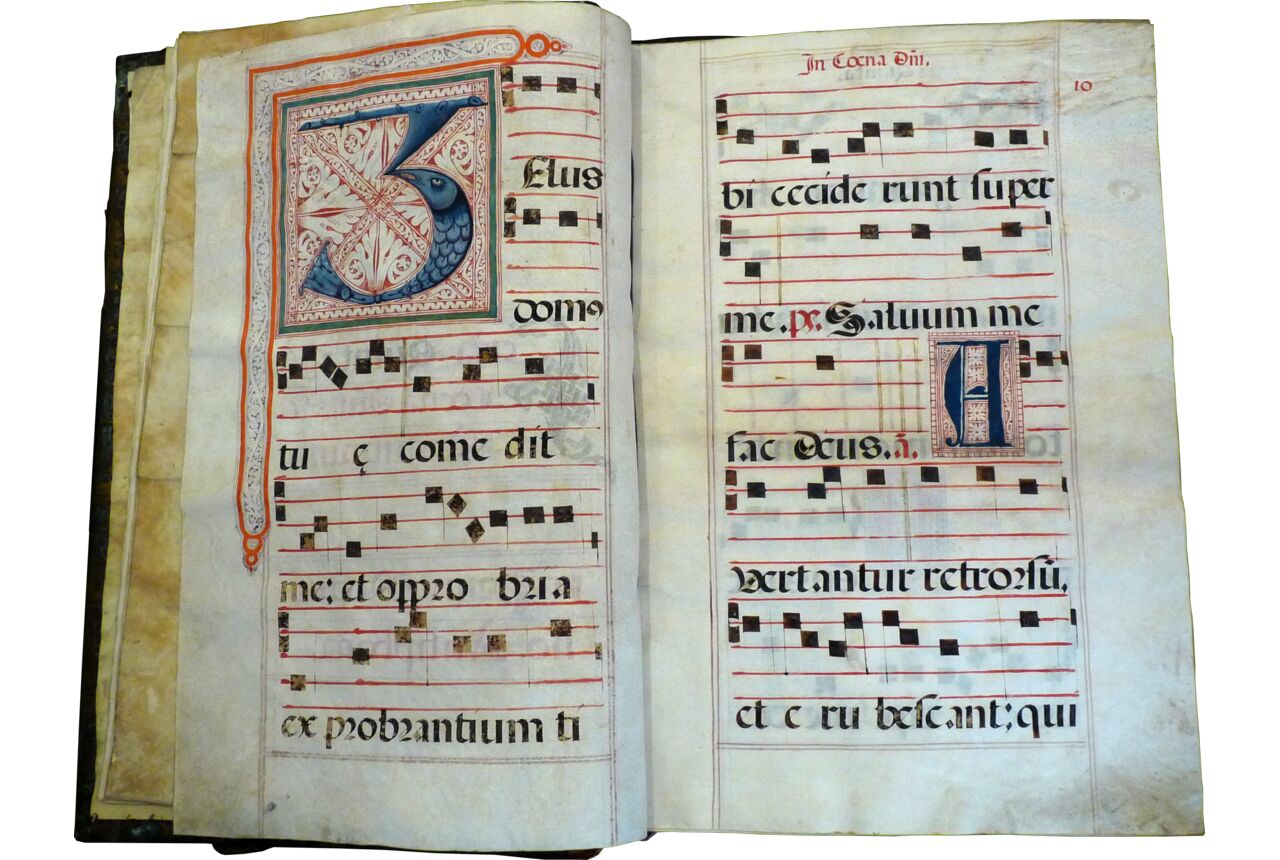 ZElus
domꝰ
tu ę come dit
me: et oppro bria
exprobrantium ti
In Cœna Dñi.
10
bi cecide runt super
me. ps. Saluum me
fac Deus. ã. A
vertantur retrorsũ,
et e ru bescant; qui